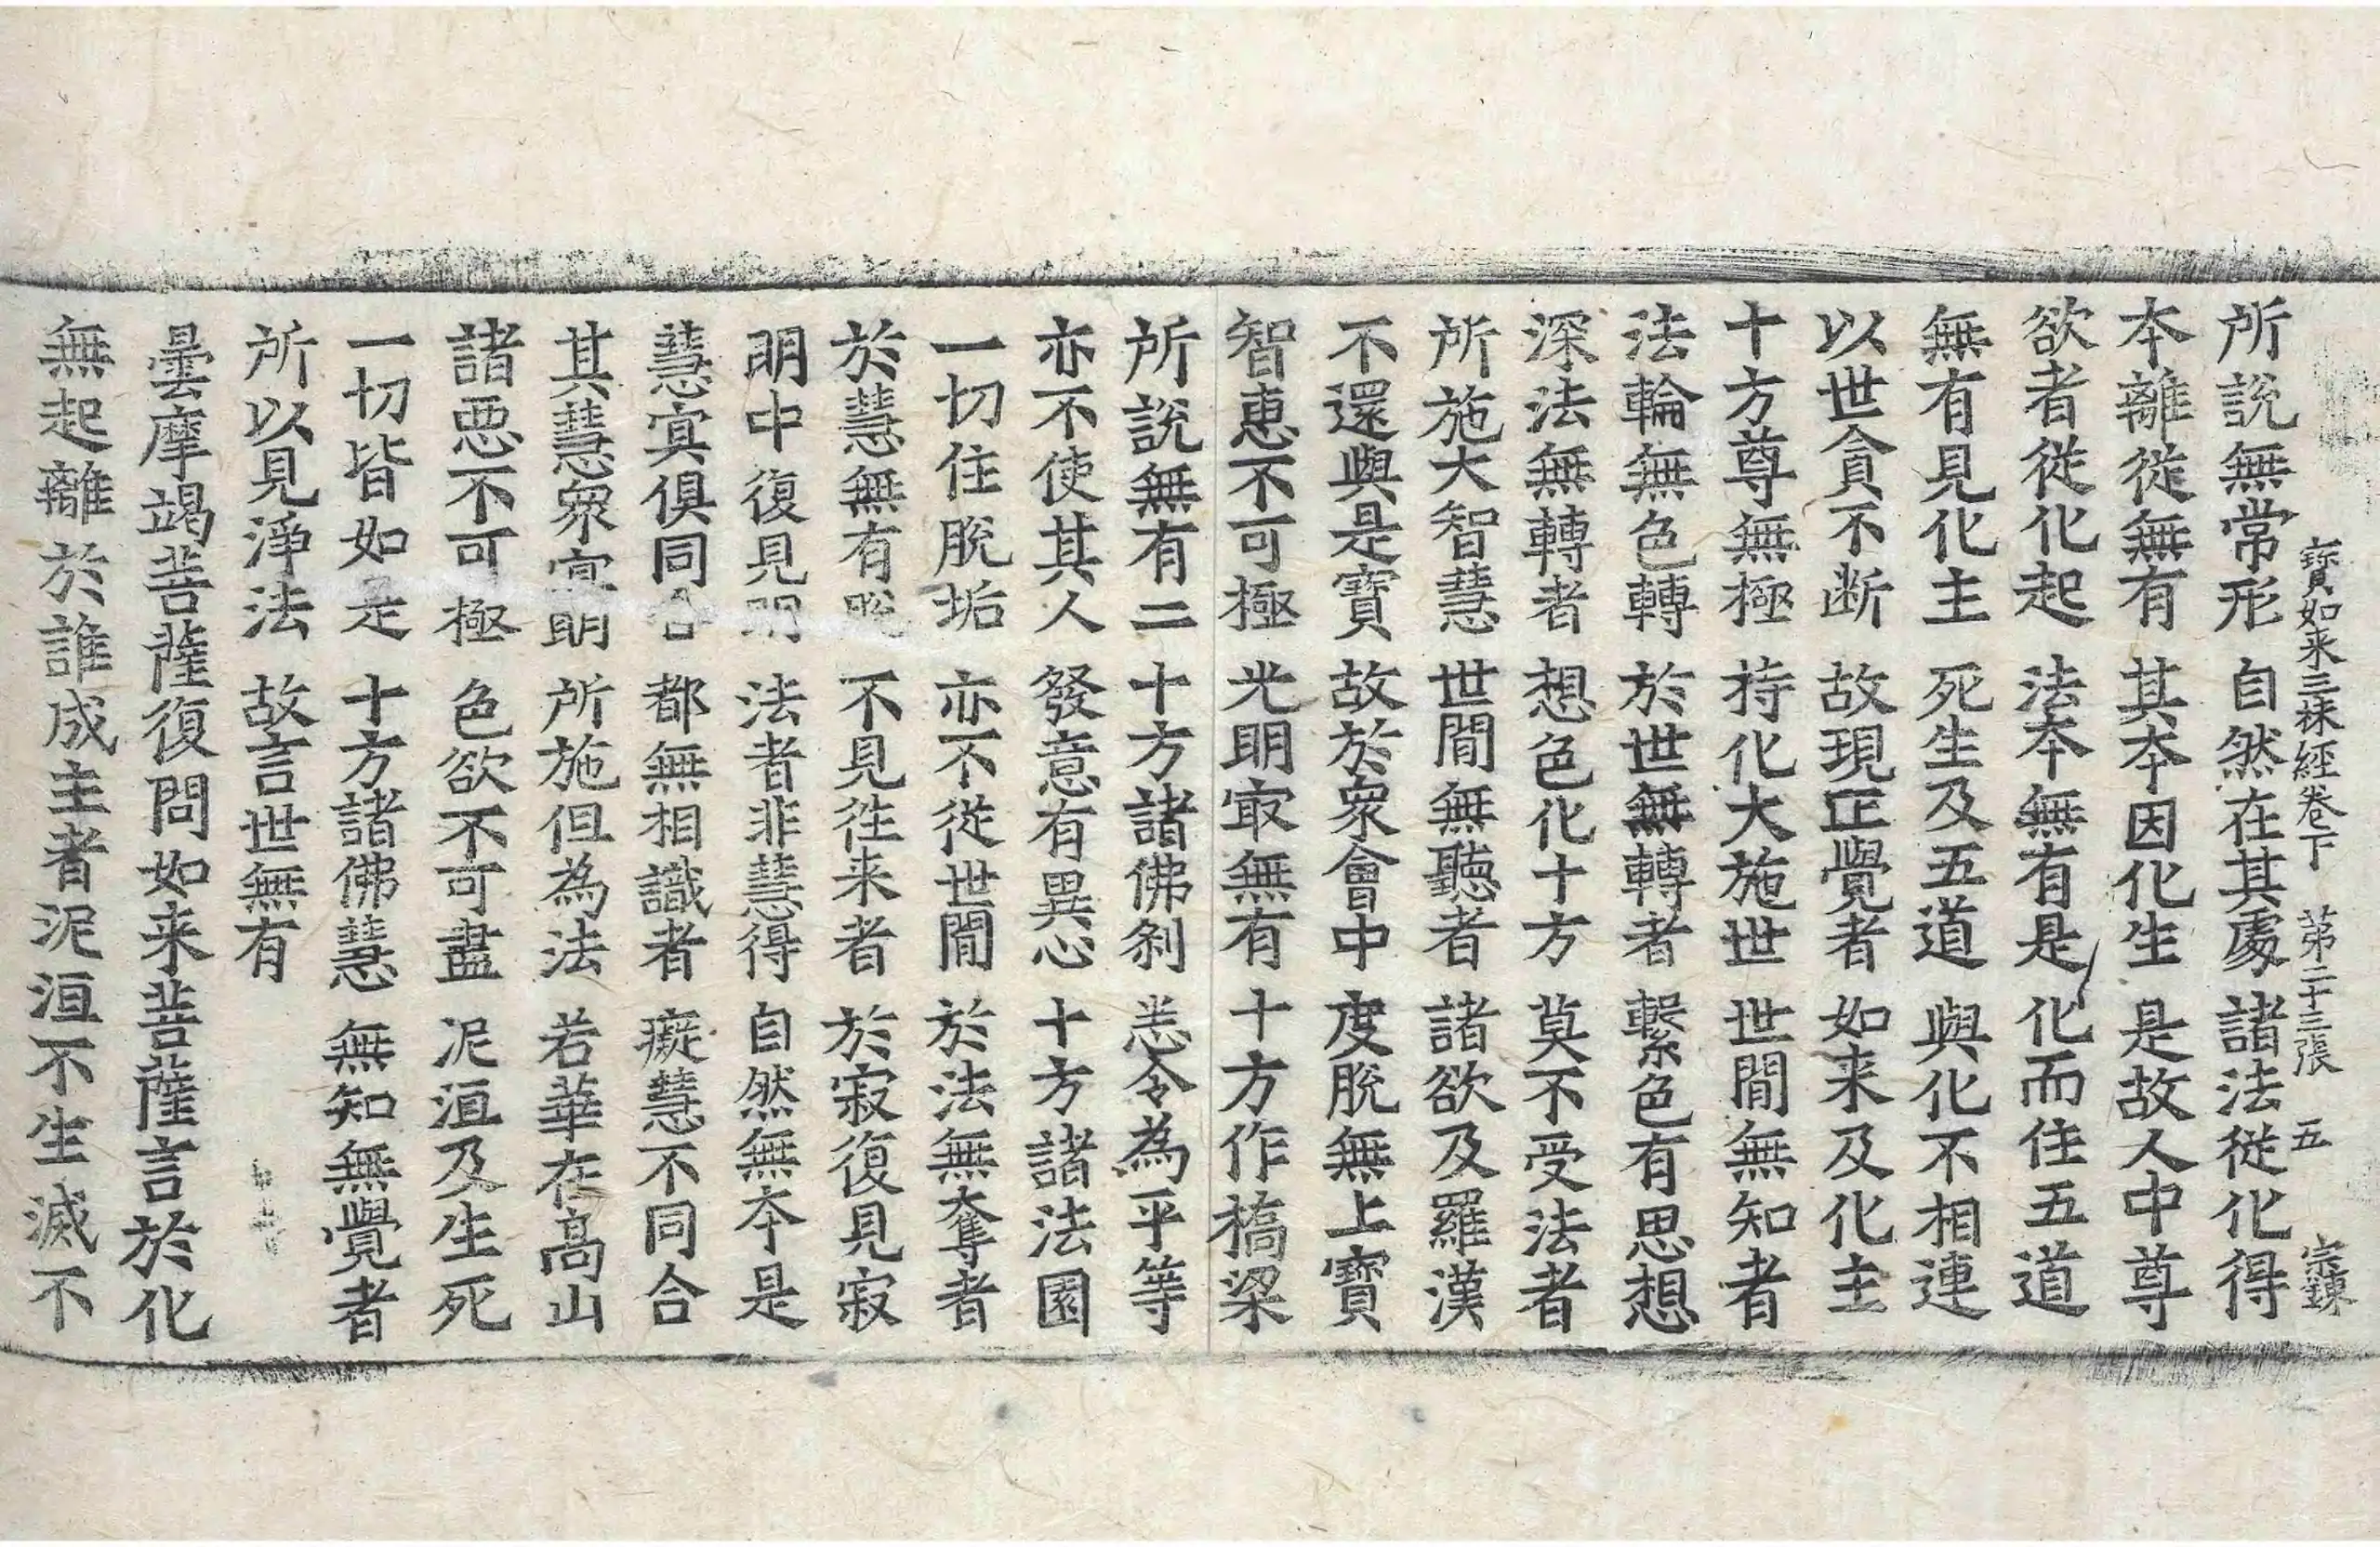 寶如来三昧經卷下 苐二十三張 五 宗鍊
所說無常形 自然在其處 諸法從化得
本離從無有 其本因化生 是故人中尊
欲者從化起 法本無有是 化而住五道
無有見化主 死生及五道 與化不相連
以世貪不断 故現正覺者 如来及化主
十方尊無極 持化大施世 世間無知者
法輪無色轉 於世無轉者 繫色有思想
深法無轉者 想色化十方 莫不受法者
所施大智慧 世間無聽者 諸欲及羅漢
不還與是寶 故於衆會中 度脫無上寶
智惠不可極 光明㝡無有 十方作橋梁
所說無有二 十方諸佛剎 悉令為平等
亦不使其人 發意有異心 十方諸法園
一切住脫垢 亦不從世間 於法無奪者
於慧無有脫 不見往来者 於寂復見寂
明中復見明 法者非慧得 自然無本是
慧㝠俱同合 都無相識者 癡慧不同合
其慧衆㝠明 所施但為法 若華在高山
諸悪不可極 色欲不可盡 泥洹及生死
一切皆如是 十方諸佛慧 無知無覺者
所以見淨法 故言世無有
曇摩竭菩薩復問如来菩薩言於化
無起離於誰成主者泥洹不生滅不